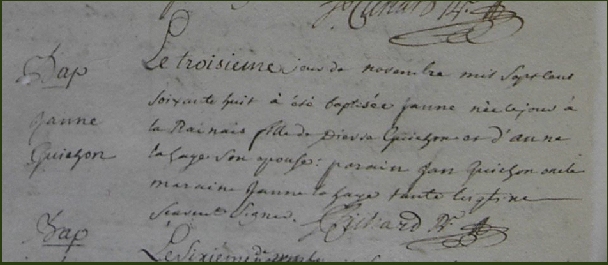 Bap
Janne
Guichon
Le troisieme jour de novembre mil sept cens
soixante huit à été baptisée janne née le jour à
la Rainais fille de Pierre Guichon et d'anne
la haye son epouse: parain jan Guichon oncle
maraine janne la haye tante lesquels ne
scavent signer.
Bap
Le sixieme novembre